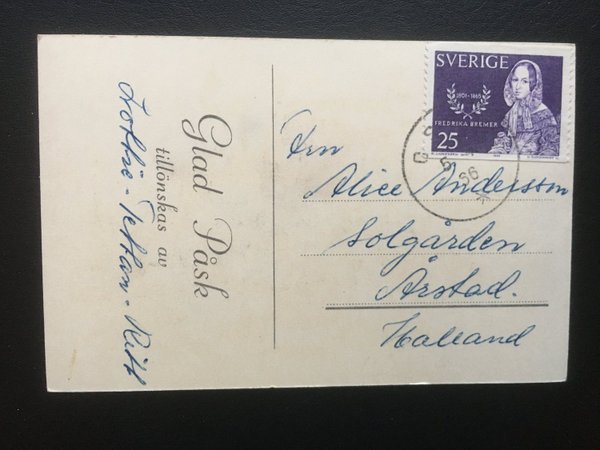 Glad Påsk
tillönskas av
SVERIGE
1801-1865
FREDRIKA BREMER
25
66
Alice Andersson
Solgården
Årstad.
Halland